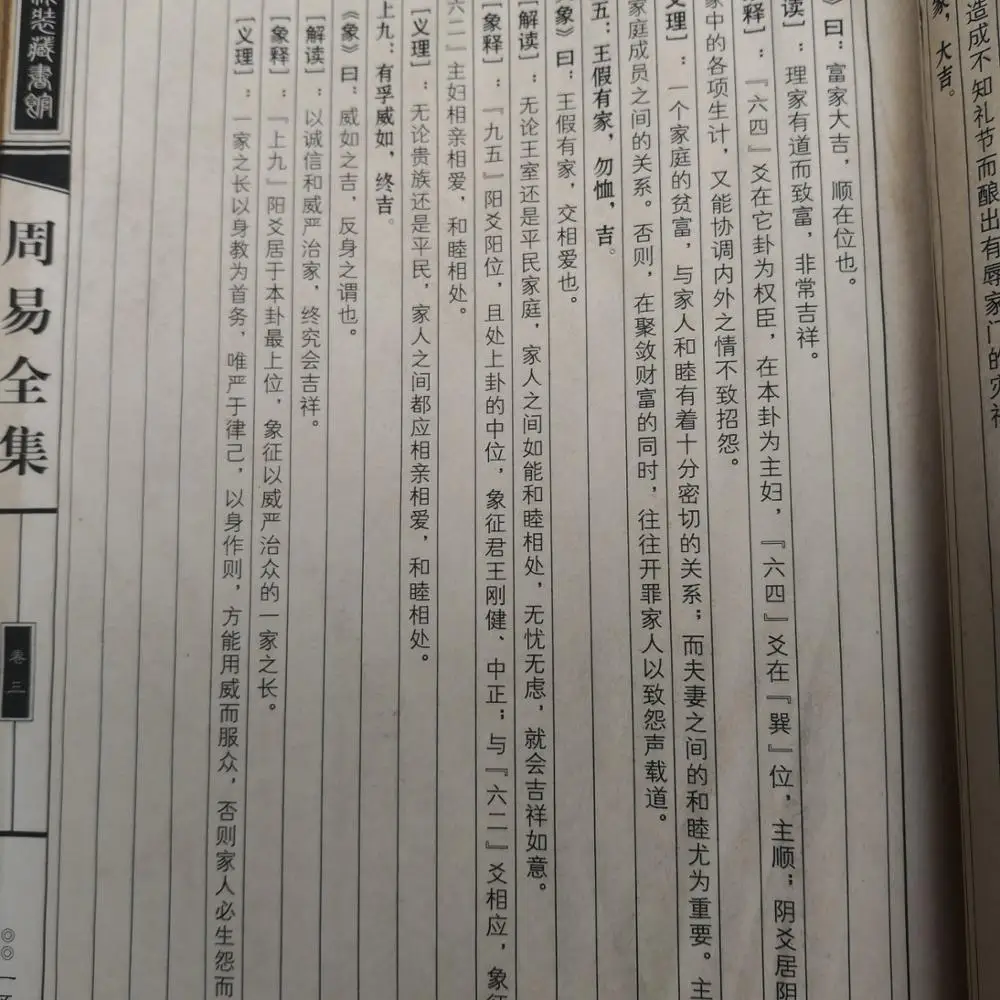 造成不知礼节而酿出有辱家门的灾祸
家，大吉。
》曰：富家大吉，顺在位也。
读］：理家有道而致富，非常吉祥。
释］：『六四』爻在它卦为权臣，在本卦为主妇，『六四』爻在『巽』位，主顺；阴爻居阴
家中的各项生计，又能协调内外之情不致招怨。
义理］：一个家庭的贫富，与家人和睦有着十分密切的关系；而夫妻之间的和睦尤为重要。主
家庭成员之间的关系。否则，在聚敛财富的同时，往往开罪家人以致怨声载道。
五：王假有家，勿恤，吉。
象》曰：王假有家，交相爱也。
［解读］：无论王室还是平民家庭，家人之间如能和睦相处，无忧无虑，就会吉祥如意。
［象释］：『九五』阳爻阳位，且处上卦的中位，象征君王刚健、中正；与『六二』爻相应，象征
六二』主妇相亲相爱，和睦相处。
［义理］：无论贵族还是平民，家人之间都应相亲相爱，和睦相处。
上九：有孚威如，终吉。
《象》曰：威如之吉，反身之谓也。
［解读］：以诚信和威严治家，终究会吉祥。
［象释］：『上九』阳爻居于本卦最上位，象征以威严治众的一家之长。
［义理］：一家之长以身教为首务，唯严于律己，以身作则，方能用威而服众，否则家人必生怨而
装藏书馆
周易全集
卷三
◎◎一